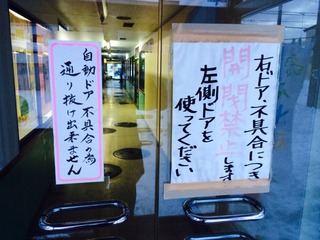 右ドア、不具合につき
開閉禁止します
左側ドアを
使ってください
自動ドア不具合の為
通り抜け出来ません